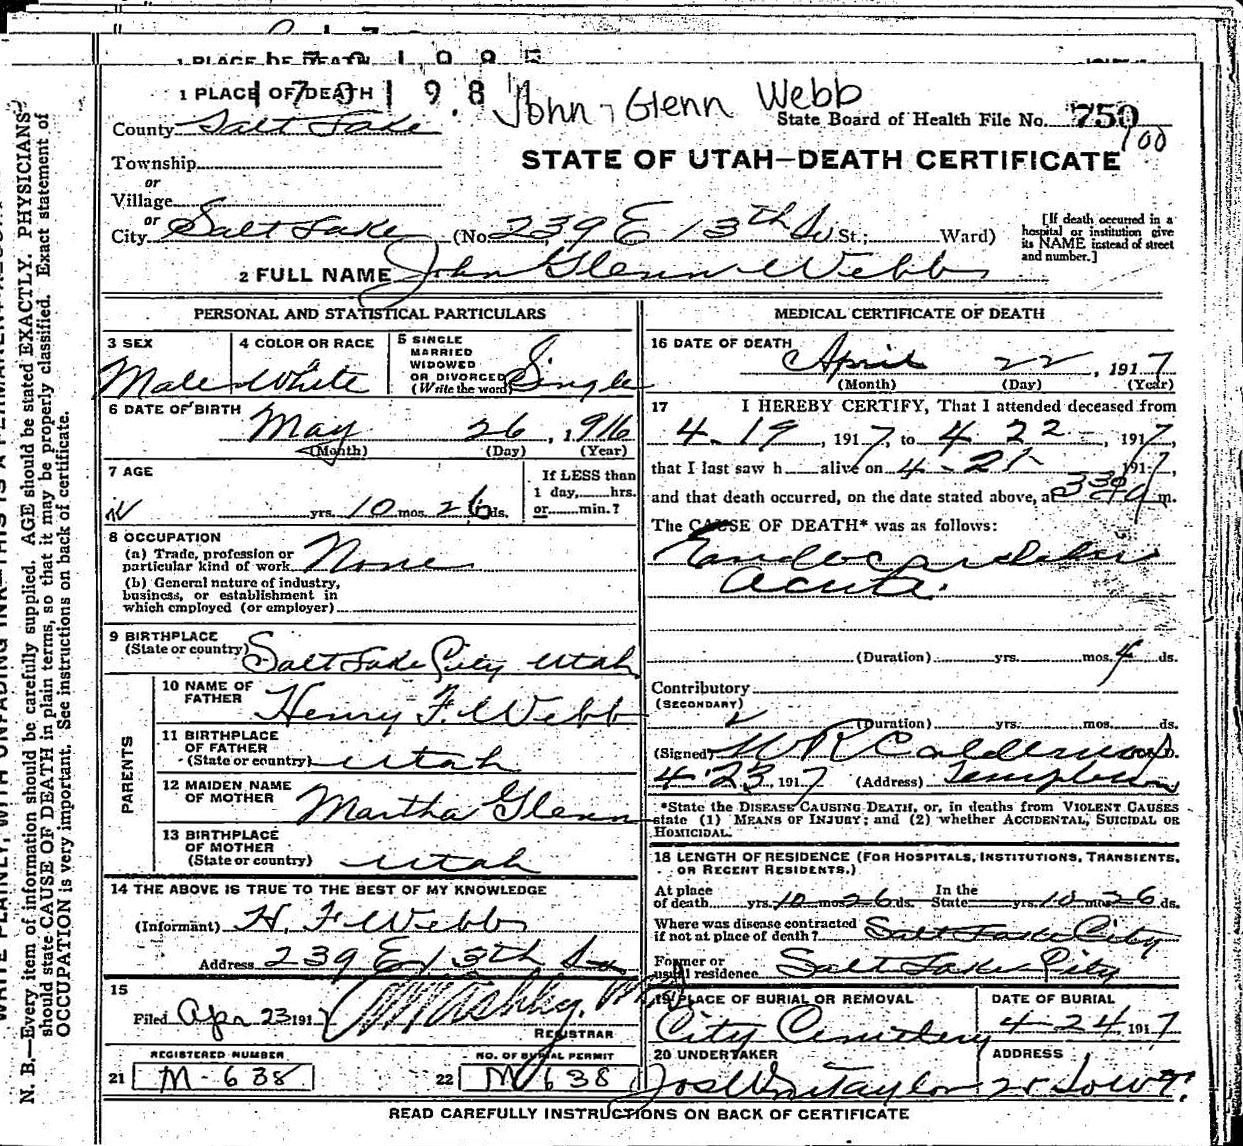 1 PLACE OF DEATH
170198
John Glenn Webb
County Salt Lake
State Board of Health File No. 750
100
STATE OF UTAH—DEATH CERTIFICATE
Township
or
Village
or
City Salt Lake (No. 239 E 13th So St.; Ward)
[If death occurred in a
hospital or institution give
its NAME instead of street
and number.]
2 FULL NAME John Glenn Webb
PERSONAL AND STATISTICAL PARTICULARS
3 SEX
Male
4 COLOR OR RACE
White
5 SINGLE
MARRIED
WIDOWED
OR DIVORCED
(Write the word) Single
6 DATE OF BIRTH
May 26, 1916
(Month) (Day) (Year)
7 AGE
yrs. 10 mos. 26 ds.
If LESS than
1 day, hrs.
or min.?
8 OCCUPATION
(a) Trade, profession or
particular kind of work None
(b) General nature of industry,
business, or establishment in
which employed (or employer)
9 BIRTHPLACE
(State or country) Salt Lake City Utah
PARENTS
10 NAME OF
FATHER Henry F. Webb
11 BIRTHPLACE
OF FATHER
(State or country) Utah
12 MAIDEN NAME
OF MOTHER Martha Glenn
13 BIRTHPLACE
OF MOTHER
(State or country) Utah
14 THE ABOVE IS TRUE TO THE BEST OF MY KNOWLEDGE
(Informant) H. F. Webb
Address 239 E 13th So
15
Filed Apr 23 1917
REGISTRAR
REGISTERED NUMBER
21 M-638
NO. OF BURIAL PERMIT
22 M 638
MEDICAL CERTIFICATE OF DEATH
16 DATE OF DEATH
April 22, 1917
(Month) (Day) (Year)
17 I HEREBY CERTIFY, That I attended deceased from
4-19, 1917, to 4-22-, 1917,
that I last saw h alive on 4-21-, 1917,
and that death occurred, on the date stated above, at 3 30 a m.
The CAUSE OF DEATH* was as follows:
Endocarditis
acuta.
(Duration) yrs. mos. 4 ds.
Contributory
(SECONDARY)
(Duration) yrs. mos. ds.
(Signed) W R Calderwood M. D.
4-23, 1917 (Address) Templeton
*State the DISEASE CAUSING DEATH, or, in deaths from VIOLENT CAUSES
state (1) MEANS OF INJURY; and (2) whether ACCIDENTAL, SUICIDAL OR
HOMICIDAL.
18 LENGTH OF RESIDENCE (FOR HOSPITALS, INSTITUTIONS, TRANSIENTS,
OR RECENT RESIDENTS.)
At place In the
of death yrs. 10 mos. 26 ds. State yrs. 10 mos. 26 ds.
Where was disease contracted
if not at place of death? Salt Lake City
Former or
usual residence Salt Lake City
19 PLACE OF BURIAL OR REMOVAL
City Cemetery
DATE OF BURIAL
4-24 1917
20 UNDERTAKER
Jos Wm Taylor
ADDRESS
READ CAREFULLY INSTRUCTIONS ON BACK OF CERTIFICATE
N. B.—Every item of information should be carefully supplied. AGE should be stated EXACTLY. PHYSICIANS
should state CAUSE OF DEATH in plain terms, so that it may be properly classified. Exact statement of
OCCUPATION is very important. See instructions on back of certificate.